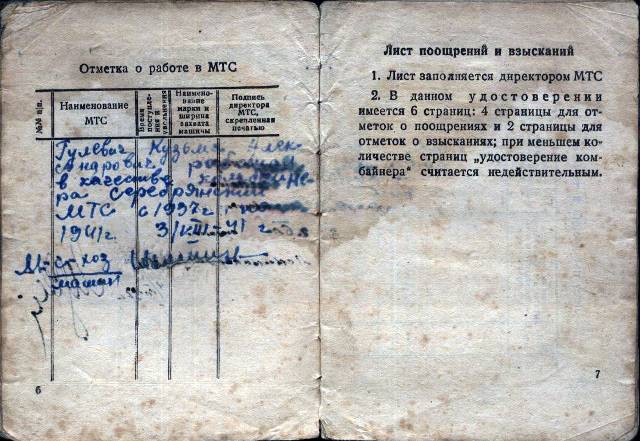 Отметка о работе в МТС
№№ п.п.
Наименование
МТС
Время
поступле-
ния и
увольнения
Наимено-
вание
марки и
ширина
захвата
машины
Подпись
директора
МТС,
скрепленная
печатью
Гулевич Кузьма Алек
сандрович работал
в качестве комбайне-
ра Серебрянской
МТС с 1937 г.
1941 г. 3/VIII-41 г
6
Лист поощрений и взысканий
1. Лист заполняется директором МТС
2. В данном удостоверении
имеется 6 страниц: 4 страницы для от-
меток о поощрениях и 2 страницы для
отметок о взысканиях; при меньшем ко-
личестве страниц „удостоверение ком-
байнера" считается недействительным.
7